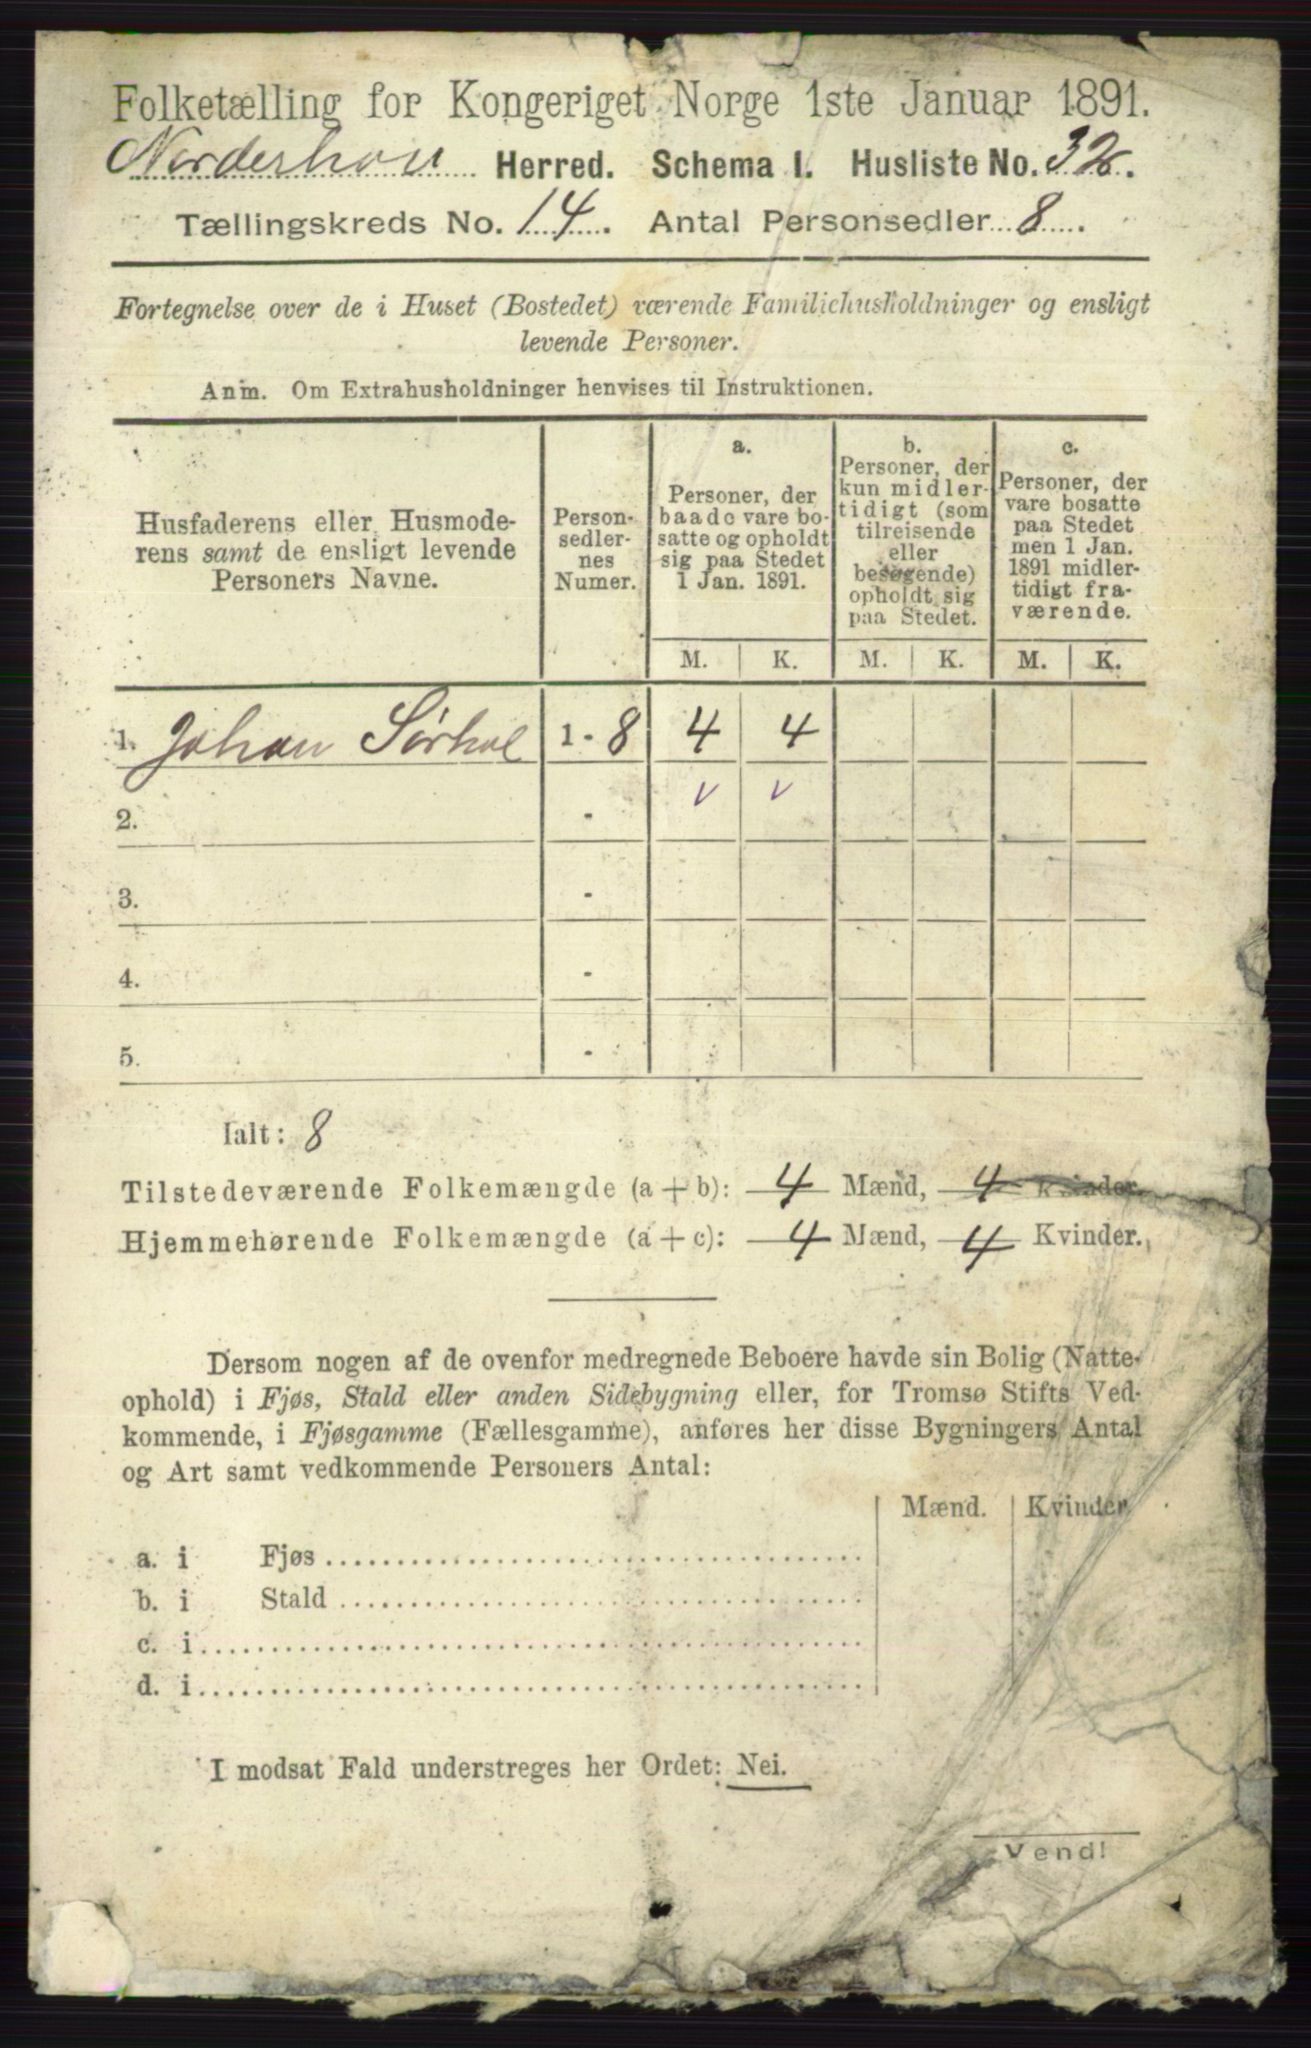 Folketælling for Kongeriget Norge 1ste Januar 1891.
Norderhov Herred. Schema I. Husliste No. 32.
Tællingskreds No. 14. Antal Personsedler 8.
Fortegnelse over de i Huset (Bostedet) værende Familiehusholdninger og ensligt
levende Personer.
Anm. Om Extrahusholdninger henvises til Instruktionen.
Husfaderens eller Husmode-
rens samt de ensligt levende
Personers Navne.
Person-
sedler-
nes
Numer.
a.
Personer, der
baade vare bo-
satte og opholdt
sig paa Stedet
1 Jan. 1891.
b.
Personer, der
kun midler-
tidigt (som
tilreisende
eller
besøgende)
opholdt sig
paa Stedet.
c.
Personer, der
vare bosatte
paa Stedet
men 1 Jan.
1891 midler-
tidigt fra-
værende.
M. K. M. K. M. K.
1. Johan Sørhol 1 - 8 4 4
v v
2. -
3. -
4. -
5. -
Ialt: 8
Tilstedeværende Folkemængde (a + b): 4 Mænd, 4 Kvinder.
Hjemmehørende Folkemængde (a + c): 4 Mænd, 4 Kvinder.
Dersom nogen af de ovenfor medregnede Beboere havde sin Bolig (Natte-
ophold) i Fjøs, Stald eller anden Sidebygning eller, for Tromsø Stifts Ved-
kommende, i Fjøsgamme (Fællesgamme), anføres her disse Bygningers Antal
og Art samt vedkommende Personers Antal:
Mænd. Kvinder.
a. i Fjøs
b. i Stald
c. i
d. i
I modsat Fald understreges her Ordet: Nei.
Vend!